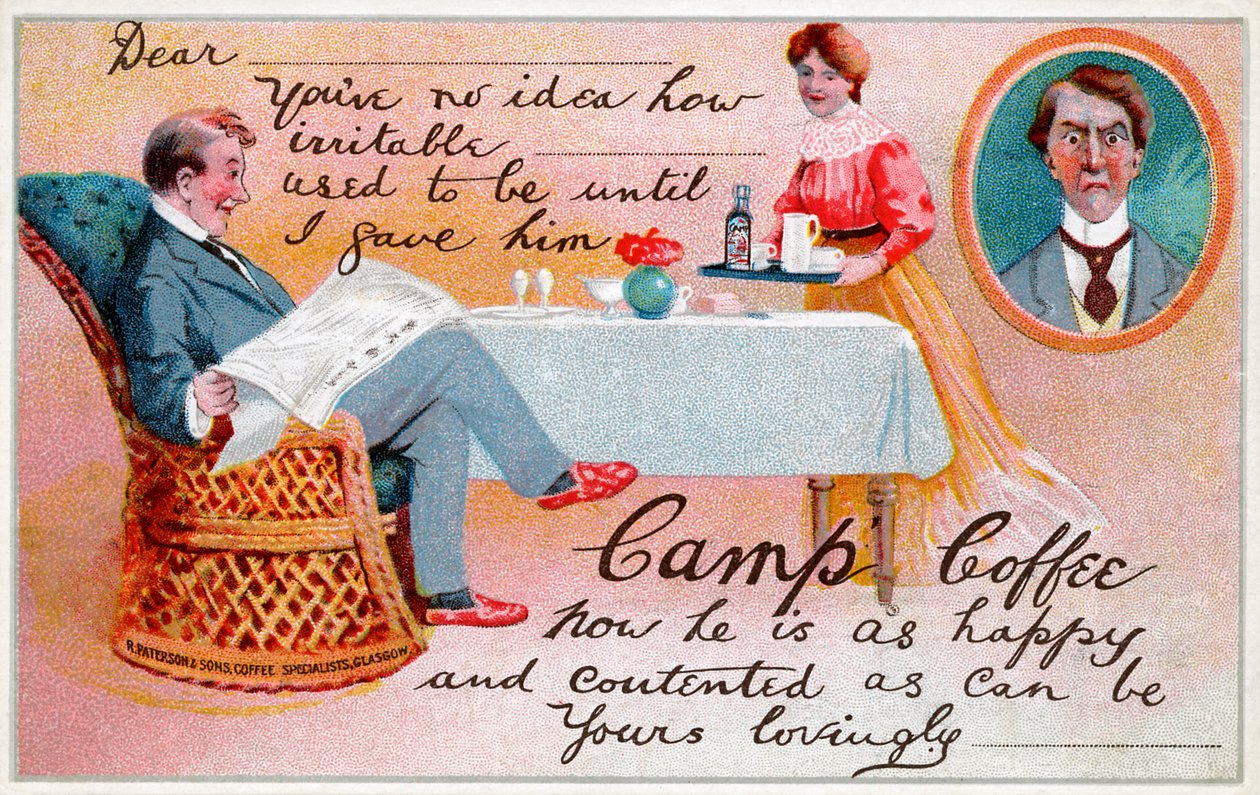 Dear
You've no idea how
irritable
used to be until
I gave him
Camp' Coffee
now he is as happy
and contented as can be
Yours lovingly
R. PATERSON & SONS, COFFEE SPECIALISTS, GLASGOW.